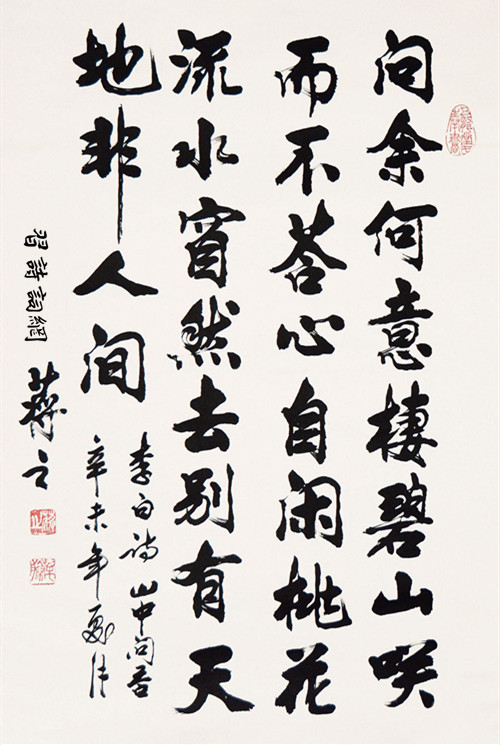 问余何意棲碧山咲
而不荅心自闲桃花
流水窅然去别有天
地非人间
李白诗山中问答
辛未年夏
習詩詞網